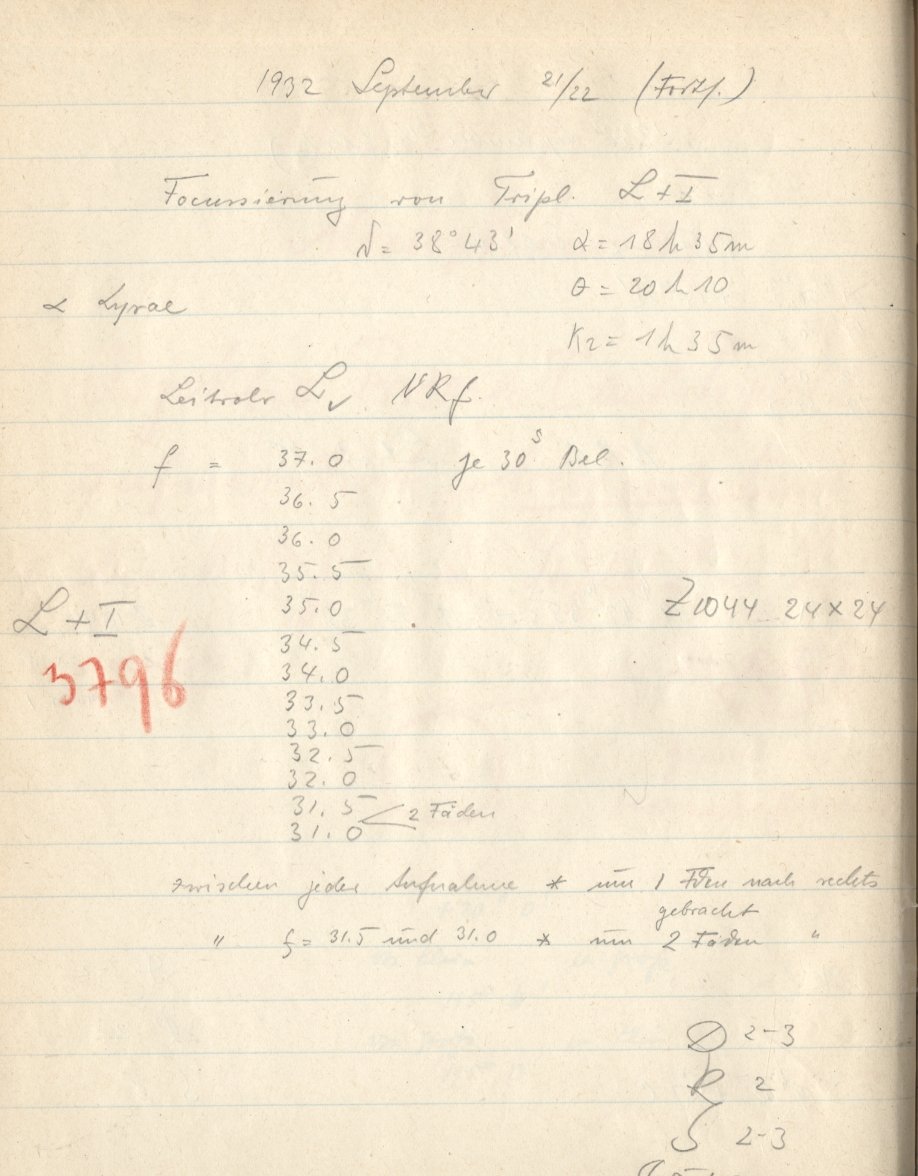 1932 September 21/22 (Forts.)
Focussierung von Tripl. L + I
δ = 38° 43' α = 18h 35m
θ = 20h 10
α Lyrae
K2 = 1h 35m
Leitrohr L NRf.
f = 37.0 je 30s Bel.
36.5
36.0
35.5
L + I 35.0 Z1044 24 x 24
34.5
3796 34.0
33.5
33.0
32.5
32.0
31.5
31.0 < 2 Fäden
zwischen jeder Aufnahme * um 1 Fden nach rechts
gebracht
" f = 31.5 und 31.0 * um 2 Fäden "
D 2-3
R 2
S 2-3